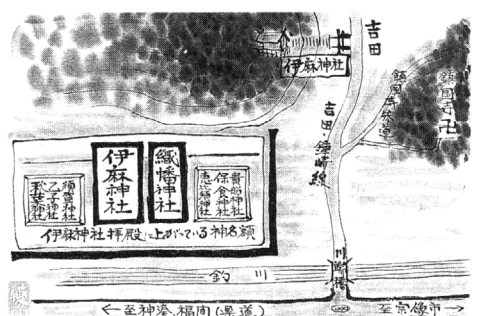 吉田
伊麻神社
鎮国寺
鎮国寺参道
吉田・鐘崎線
伊麻神社
織幡神社
須賀神社
乙子神社
秋葉神社
貴船神社
保食神社
恵比須神社
伊麻神社拝殿に上がっている神名額
釣川
川崎橋
←至神湊、福岡(県道)
至宗像市→